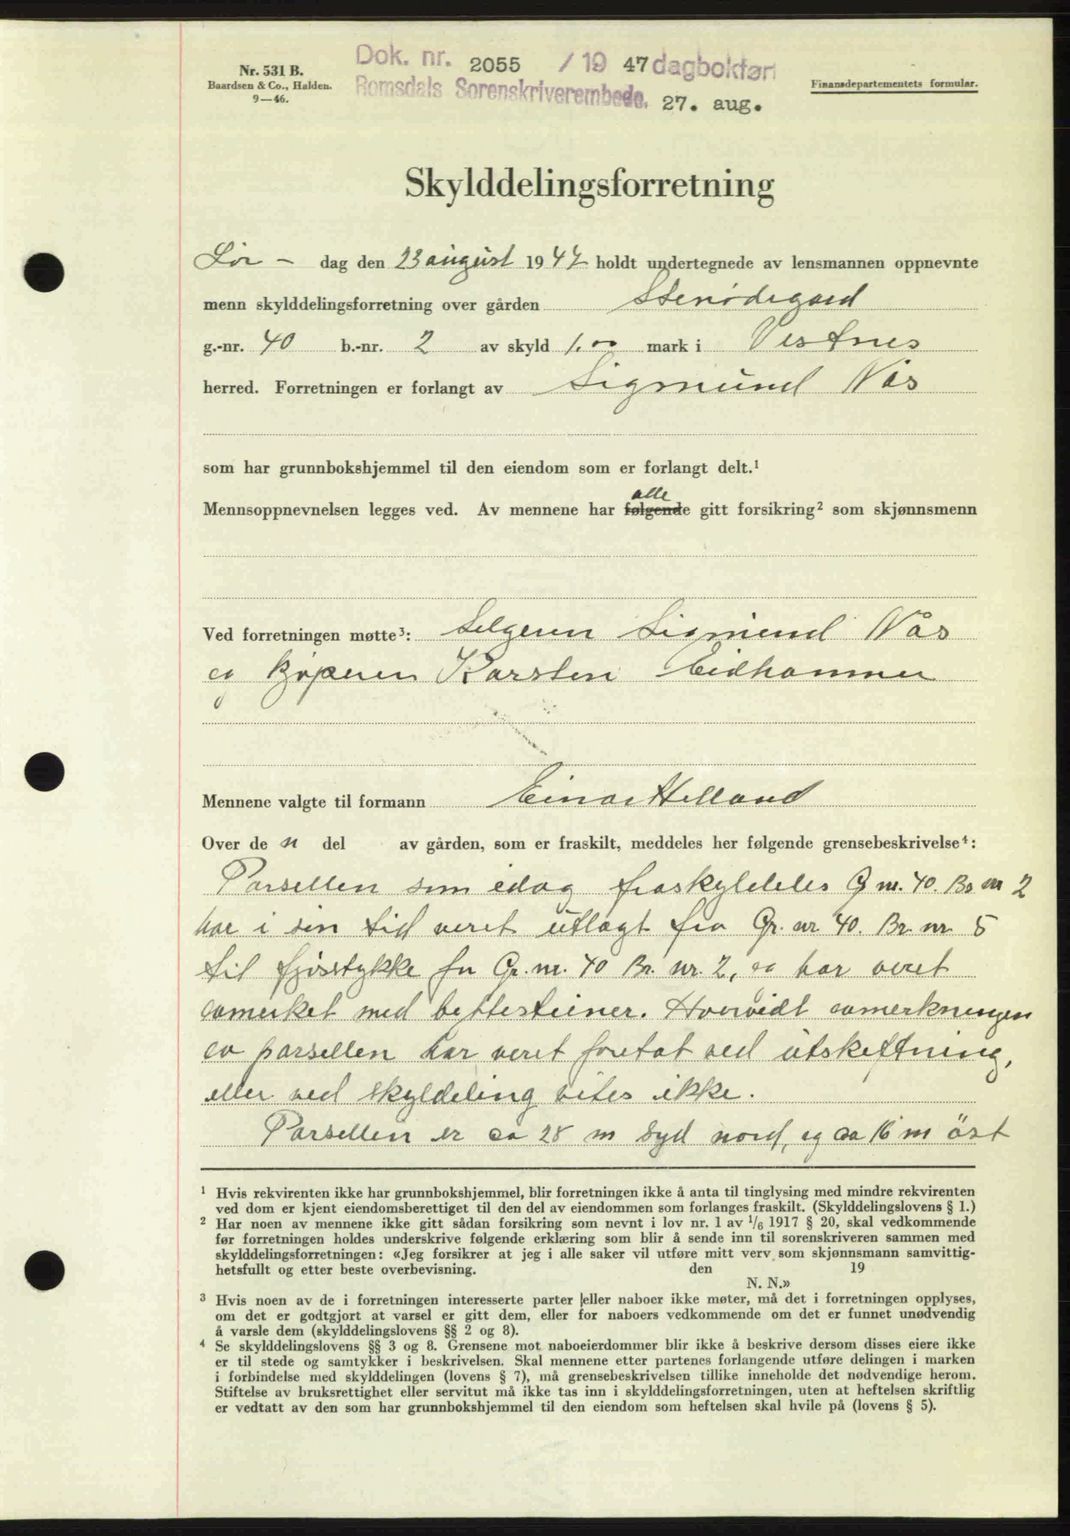 Nr. 531 B.
Baardsen & Co., Halden.
9—46.
Dok. nr. 2055 / 19 47 dagbokført
Romsdals Sorenskriverembede. 27. aug.
Finansdepartementets formular.
Skylddelingsforretning
Lör - dag den 23 august 1947 holdt undertegnede av lensmannen oppnevnte
menn skylddelingsforretning over gården Stenødegaard
g.-nr. 40 b.-nr. 2 av skyld 1.00 mark i Vestnes
herred. Forretningen er forlangt av Sigmund Nås
som har grunnbokshjemmel til den eiendom som er forlangt delt.¹
alle
Mennsoppnevnelsen legges ved. Av mennene har følgende gitt forsikring² som skjønnsmenn
Ved forretningen møtte³: Selgeren Sigmund Nås
og kjøperen Karsten Eidhammer
Mennene valgte til formann Einar Helland
Over de n del av gården, som er fraskilt, meddeles her følgende grensebeskrivelse⁴:
Parsellen som idag fraskyldeles G nr. 40. Br nr 2
har i sin tid veret utlagt fra Gr. nr 40. Br. nr. 5
til fjøsstykke for Gr. nr. 40 Br. nr. 2, og har veret
avmerket med byttesteiner. Hvorvidt avmerkningen
av parsellen har veret foretat ved utskiftning,
eller ved skyldeling vites ikke.
Parsellen er ca 28 m syd nord, og ca 16 m öst
¹ Hvis rekvirenten ikke har grunnbokshjemmel, blir forretningen ikke å anta til tinglysing med mindre rekvirenten
ved dom er kjent eiendomsberettiget til den del av eiendommen som forlanges fraskilt. (Skylddelingslovens § 1.)
² Har noen av mennene ikke gitt sådan forsikring som nevnt i lov nr. 1 av 1/6 1917 § 20, skal vedkommende
før forretningen holdes underskrive følgende erklæring som blir å sende inn til sorenskriveren sammen med
skylddelingsforretningen: «Jeg forsikrer at jeg i alle saker vil utføre mitt verv som skjønnsmann samvittig-
hetsfullt og etter beste overbevisning. den 19
N. N.»
³ Hvis noen av de i forretningen interesserte parter eller naboer ikke møter, må det i forretningen opplyses,
om det er godtgjort at varsel er gitt dem, eller for naboers vedkommende om det er funnet unødvendig
å varsle dem (skylddelingslovens §§ 2 og 8).
⁴ Se skylddelingslovens §§ 3 og 8. Grensene mot naboeierdommer blir ikke å beskrive dersom disses eiere ikke
er til stede og samtykker i beskrivelsen. Skal mennene etter partenes forlangende utføre delingen i marken
i forbindelse med skylddelingen (lovens § 7), må grensebeskrivelsen tillike inneholde det nødvendige herom.
Stiftelse av bruksrettighet eller servitut må ikke tas inn i skylddelingsforretningen, uten at heftelsen skriftlig
er vedtatt av den som har grunnbokshjemmel til den eiendom som heftelsen skal hvile på (lovens § 5).